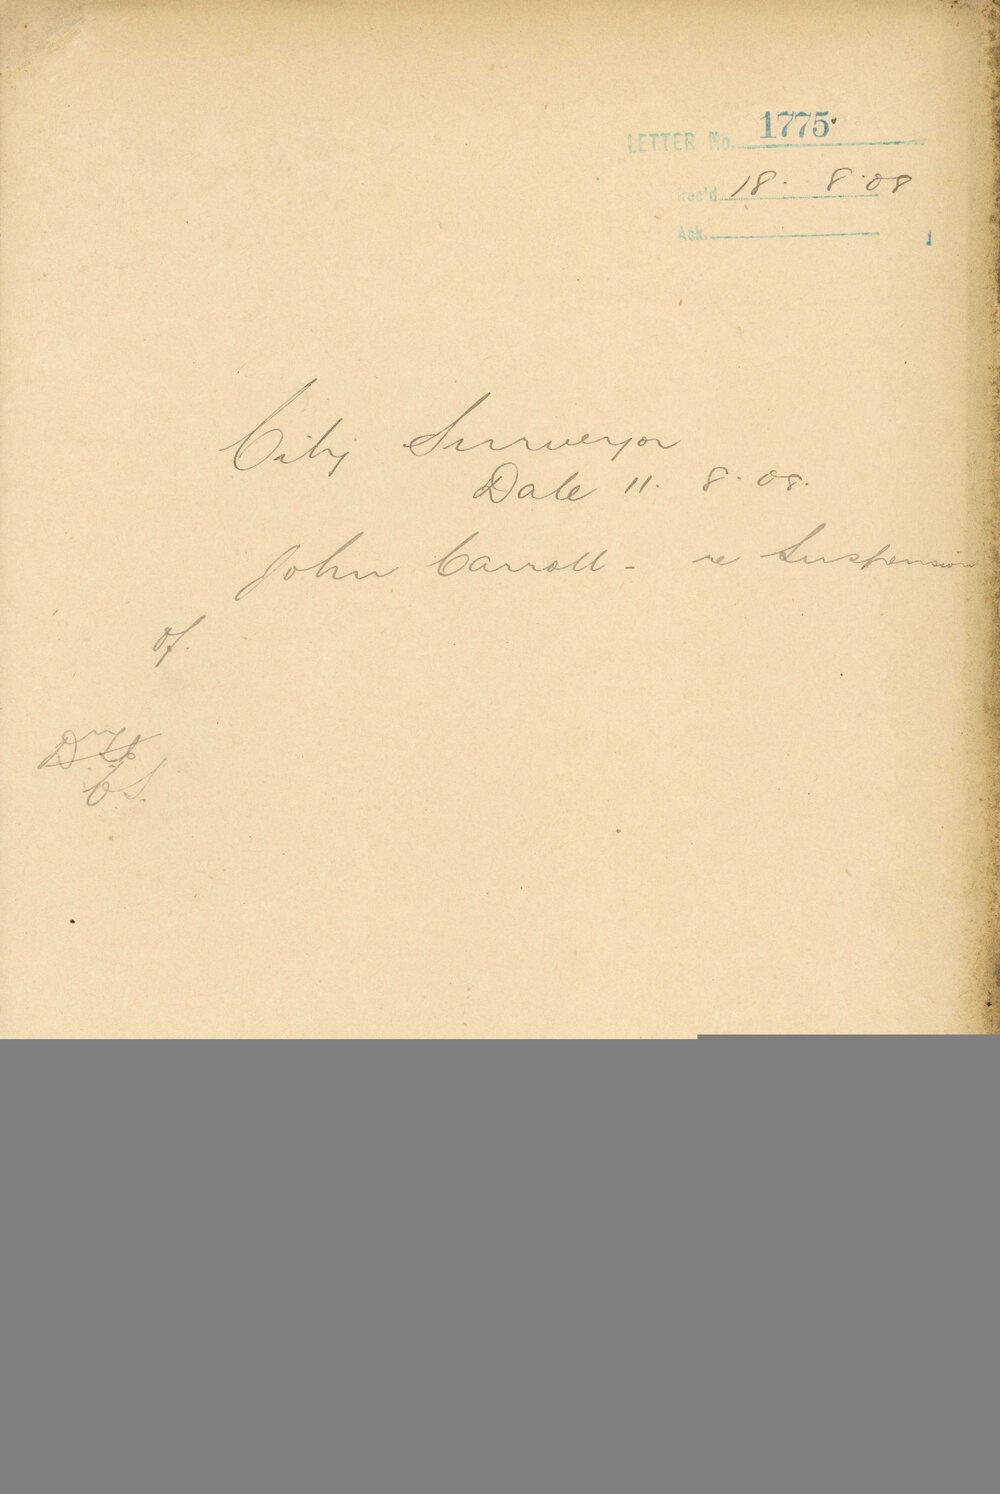 LETTER No. 1775
Rec'd 18. 8.08
Ack.
City Surveyor
Date 11. 8. 08.
John Carroll - re Suspension
of.
C.S.